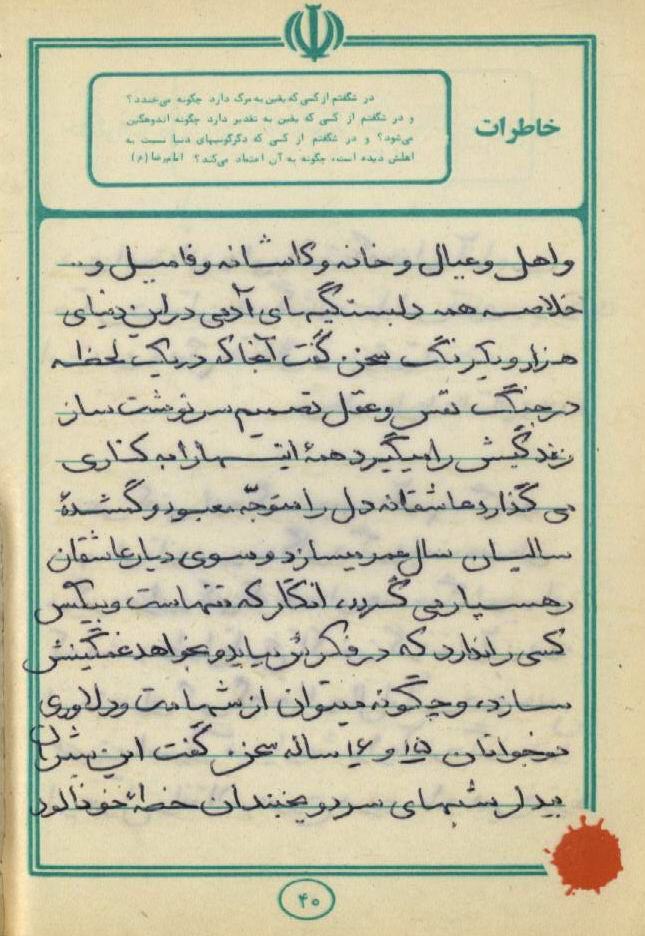 خاطرات
در شگفتم از کسی که یقین به مرگ دارد چگونه می‌خندد؟
و در شگفتم از کسی که یقین به تقدیر دارد چگونه اندوهگین
می‌شود؟ و در شگفتم از کسی که دگرگونیهای دنیا نسبت به
اهلش دیده است، چگونه به آن اعتماد می‌کند؟ امام‌رضا (ع)
و اهل و عیال و خانه و کاشانه و فامیل و...
خلاصه همه دلبستگیهای آدمی در این دنیای
هزار و یکرنگ سخن گفت آنجا که در یک لحظه
در جنگ نفس و عقل تصمیم سرنوشت ساز
زندگیش را میگیرد همهٔ اینها را به کناری
می گذارد عاشقانه دل را متوجّه معبود و گمشدهٔ
سالیان سال عمر میسازد و سوی دیار عاشقان
رهسپار می گردد، انگار که تنهاست و بیکس
کسی را ندارد که در فکرش بیاید و بخواهد غمگینش
سازد، و چگونه میتوان از شهامت و دلاوری
نوجوانان ۱۵ و ۱۶ ساله سخن گفت این شیران
بیدل شبهای سرد و یخبندان خطهٔ خون‌آلود
۴۰